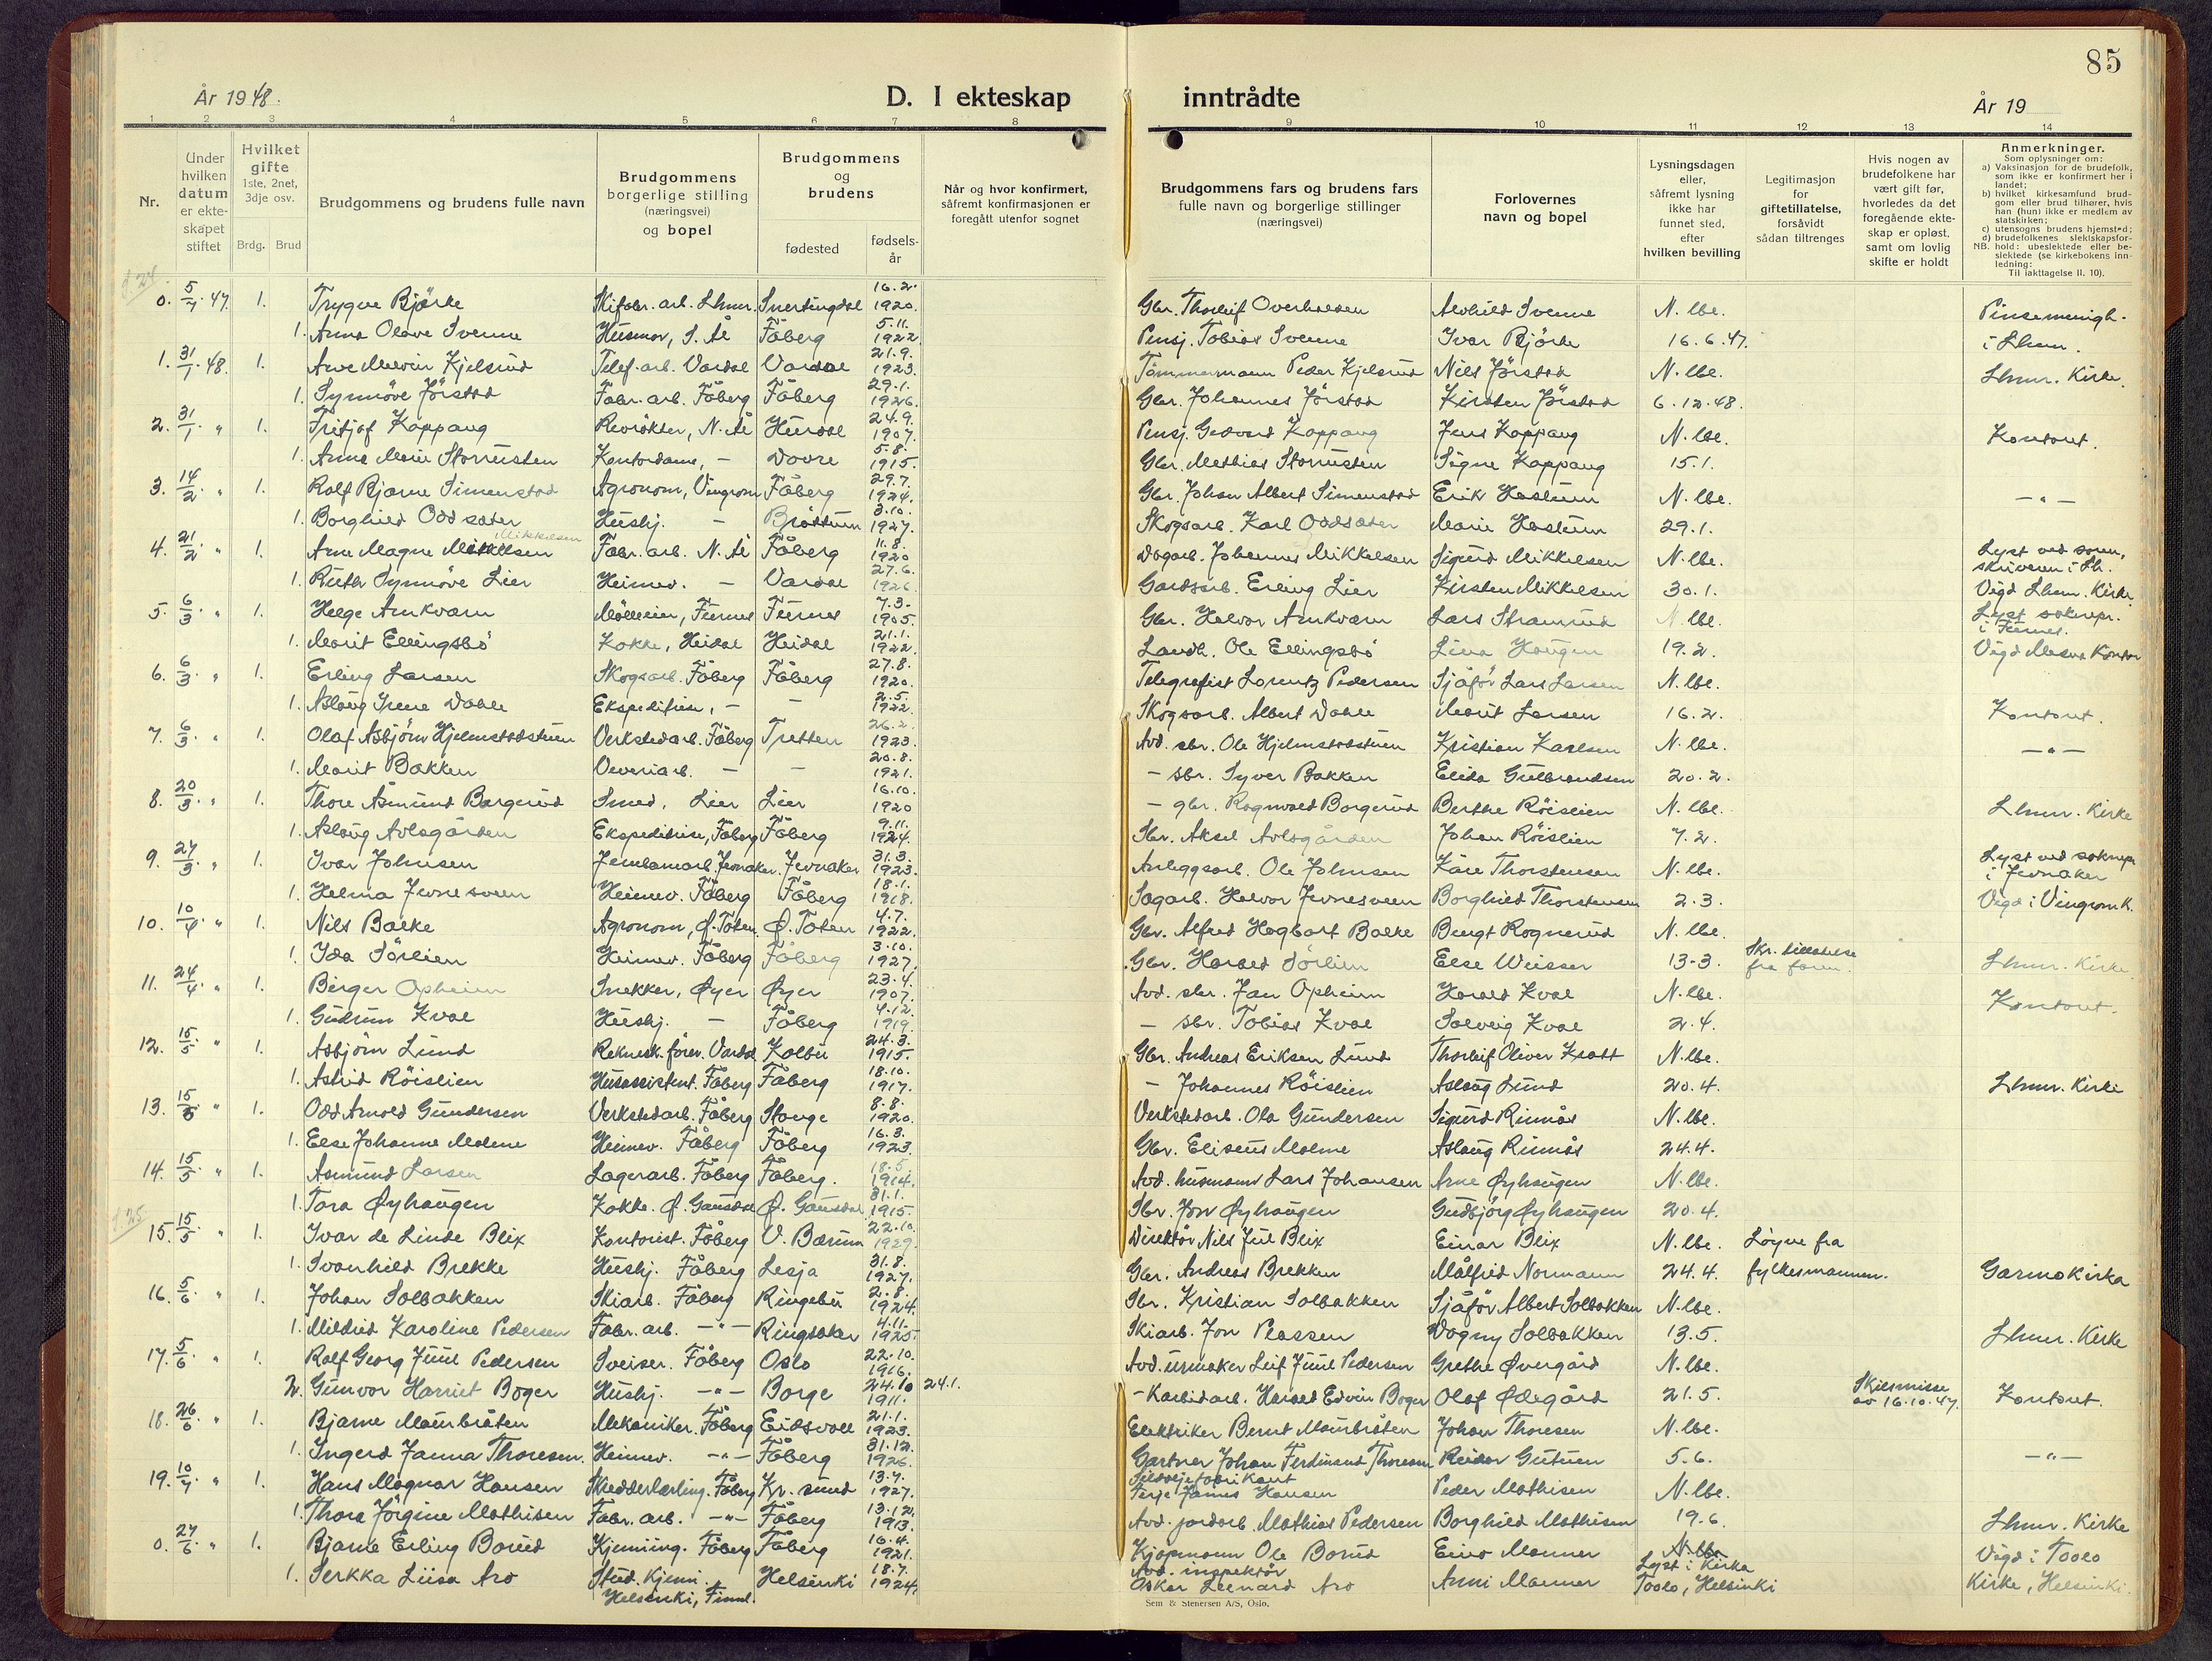 85
År 1948.
D. I ekteskap inntrådte
År 19
1 2 3 4 5 6 7 8 9 10 11 12 13 14
Nr.
Under hvilken datum er ekteskapet stiftet
Hvilket gifte 1ste, 2net, 3dje osv.
Brdg. Brud
Brudgommens og brudens fulle navn
Brudgommens borgerlige stilling (næringsvei) og bopel
Brudgommens og brudens
fødested
fødselsår
Når og hvor konfirmert, såfremt konfirmasjonen er foregått utenfor sognet
Brudgommens fars og brudens fars fulle navn og borgerlige stillinger (næringsvei)
Forlovernes navn og bopel
Lysningsdagen eller, såfremt lysning ikke har funnet sted, efter hvilken bevilling
Legitimasjon for giftetillatelse, forsåvidt sådan tiltrenges
Hvis nogen av brudefolkene har vært gift før, hvorledes da det foregående ekteskap er opløst, samt om lovlig skifte er holdt
Anmerkninger.
Som oplysninger om:
a) Vaksinasjon for de brudefolk, som ikke er konfirmert her i landet;
b) hvilket kirkesamfund brudgom eller brud tilhører, hvis han (hun) ikke er medlem av statskirken;
c) utensogns brudens hjemsted;
d) brudefolkenes slektskapsforhold: ubeslektede eller beslektede (se kirkebokens innledning:
NB. Til iakttagelse II. 10).
0. 5/7. 47. 1. Trygve Bjørke Skifabr. arb. Lhmr. Snertingdal 16.2. 1920. Gbr. Thorleif Overhalsen Alvhild Svenne N. lbe. Pinsemenigh.
1. Anna Olave Svenne Husmor, S. Ål Fåberg 5.11. 1922 Pensj. Tobias Svenne Ivar Bjørke 16.6.47. i Lhmr.
1. 31/1. 48. 1. Arve Melvin Kjelsrud Telef. arb. Vardal Vardal 21.9. 1923. Tømmermann Peder Kjelsrud Nils Jørstad N. lbe. Lhmr. Kirke.
1. Synnøve Jørstad Fabr. arb. Fåberg Fåberg 29.1. 1926. Gbr. Johannes Jørstad Kirsten Jørstad 6.12.48.
2. 31/1. " 1. Fritjof Koppang Revirøkter, N. Ål Hurdal 24.9. 1907. Pensj. Gedvard Koppang Jens Koppang N. lbe. Kontoret.
1. Anna Marie Storrusten Kontordame, - Dovre 5.8. 1915. Gbr. Mathias Storrusten Signe Koppang 15.1.
3. 14/2. " 1. Rolf Bjarne Simenstad Agronom, Vingrom Fåberg 29.7. 1924. Gbr. Johan Albert Simenstad Erik Haslum N. lbe. — " —
1. Borghild Oddsæter Hushj. - Brøttum 3.10. 1927. Skogsarb. Karl Oddsæter Marie Haslum 29.1.
4. 21/2. " 1. Arne Magne Mikkelsen Mikkelsen Fabr. arb. N. Ål Fåberg 11.8. 1920 Dagarb. Johannes Mikkelsen Sigurd Mikkelsen N. lbe. Lyst ved soren-skriveren i Lh.
1. Ruth Synnøve Lier Heimev. - Vardal 27.6. 1926. Gardsarb. Erling Lier Kirsten Mikkelsen 30.1. Vigd Lhmr. Kirke
5. 6/3. " 1. Helge Amkvam Mølleeier, Furnes Furnes 7.3. 1905. Gbr. Halvor Amkvam Lars Stramrud N. lbe. Lyst sokнepr. i Furnes.
1. Marit Ellingsbø Kokke, Heidal Heidal 21.1. 1922. Landh. Ole Ellingsbø Lina Haugen 19.2. Vigd Mesna Kontor
6. 6/3. " 1. Erling Larsen Skogsarb. Fåberg Fåberg 27.8. 1920. Telegrafist Lorentz Pedersen Sjåfør Lars Larsen N. lbe.
1. Aslaug Irene Dahle Ekspeditrise, - - 2.5. 1922. Skogsarb. Albert Dahle Marit Larsen 16.2. Kontoret.
7. 6/3. " 1. Olaf Asbjørn Hjelmstadstuen Verkstedarb. Fåberg Tretten 26.2. 1923. Avd. sbr. Ole Hjelmstadstuen Kristian Karlsen N. lbe. — " —
1. Marit Bakken Veveriarb. - - 20.8. 1921. - sbr. Syver Bakken Elida Gulbrandsen 20.2.
8. 20/3. " 1. Thore Åsmund Borgerud Smed, Lier Lier 16.10. 1920 - gbr. Ragnvald Borgerud Berthe Røislien N. lbe. Lhmr. Kirke
1. Aslaug Avlsgården Ekspeditrise, Fåberg Fåberg 9.11. 1924. Sbr. Aksel Avlsgården Johan Røislien 7.2.
9. 27/3. " 1. Ivar Johnsen Jernbanearb. Jevnaker. Jevnaker 31.3. 1923. Anleggsarb. Ole Johnsen Kåre Thorstensen N. lbe. Lyst ved soknepr. i Jevnaker
1. Helma Jevnesveen Heimev. Fåberg Fåberg 18.1. 1918. Sagarb. Halvor Jevnesveen Borghild Thorstensen 2.3. Vigd i Vingrom K.
10. 10/4. " 1. Nils Balke Agronom, Ø. Toten. Ø. Toten 4.7. 1922. Gbr. Alfred Hagbart Balke Bengt Rognerud N. lbe.
1. Ida Sørlien Heimev. Fåberg Fåberg 3.10. 1927. Gbr. Harald Sørlien Else Weisser 13-3. Skr. tillatelse fra foren. Lhmr. Kirke
11. 24/4. " 1. Birger Opheim Snekker, Øyer Øyer 23.4. 1907. Avd. sbr. Jan Opheim Harald Kval N. lbe. Kontoret.
1. Gudrun Kval Hushj. - Fåberg 4.12. 1919. - sbr. Tobias Kval Solveig Kval 2.4.
12. 15/5. " 1. Asbjørn Lund Reknesk. fører. Vardal Kolbu 24.3. 1915. Gbr. Andreas Eriksen Lund Thorleif Oliver Kratt N. lbe.
1. Astrid Røislien Husassistent. Fåberg Fåberg 18.10. 1917. - Johannes Røislien Aslaug Lund 20.4. Lhmr. Kirke
13. 15/5. " 1. Odd Arnold Gundersen Verkstedarb. Fåberg Stange 8.8. 1920. Verkstedarb. Ola Gundersen Sigurd Rinnås N. lbe.
1. Else Johanne Malme Heimev. Fåberg Fåberg 16.3. 1923. Gbr. Eliseus Malme Aslaug Rinnås 24.4.
14. 15/5. " 1. Asmund Larsen Lagerarb. Fåberg Fåberg. 18.5. 1914. Avd. husmann Lars Johansen Arne Øyhaugen N. lbe.
1. Tora Øyhaugen Kokke. Ø. Gausdal Ø. Gausdal 31.1. 1915. Sbr. Jon Øyhaugen Gudbjørg Øyhaugen 20.4.
15. 15/5. " 1. Ivar de Linde Blix Kontorist. Fåberg V. Bærum 22.10. 1929. Direktør Nils Juul Blix Einar Blix N. lbe. Løyve fra
1. Svanhild Brekke Hushj. Fåberg Lesja 31.8. 1927. Gbr. Andreas Brekken Målfrid Normann 24.4. fylkesmannen. Garmokirka
16. 5/6. " 1. Johan Solbakken Skiarb. Fåberg Ringebu 2.8. 1924. Sbr. Kristian Solbakken Sjåfør Albert Solbakken N. lbe.
1. Mildrid Karoline Pedersen Fabr. arb. — " — Ringsaker 4.11. 1925. Skiarb. Jon Plassen Dagny Solbakken 13.5. Lhmr. Kirke
17. 5/6. " 1. Rolf Georg Juul Pedersen Sveiser. Fåberg Oslo 22.10. 1916. Avd. urmaker Leif Juul Pedersen Grethe Øvergård N. lbe.
2. Gunvor Harriet Boger Hushj. — " — Borge 24.10 1911. 24.1. - Karbidarb. Harald Edvin Boger Olaf Ødegård 21.5. Skilsmisse av 16.10.47. Kontoret.
18. 26/6. " 1. Bjarne Maurbråten Mekaniker. Fåberg Eidsvoll 21.1. 1923. Elektriker Bernt Maurbråten Johan Thoresen N. lbe.
1. Ingerd Janna Thoresen. Heimev. — " — Fåberg 31.12. 1926. Gartner Johan Ferdinand Thoresen Reidar Gutuen 5.6. — " —
19. 10/7. " 1. Hans Magnar Hansen Skredderlærling. Fåberg Kr. sund 13.7. 1927. Sildoljefabrikant Terje James Hansen Peder Mathisen N. lbe.
1. Thora Jørgine Mathisen Fabr. arb. — " — Fåberg 13.12. 1913. Avd. jordarb. Mathias Pedersen Borghild Mathisen 19.6. Lhmr. Kirke
0. 27/6. " 1. Bjarne Erling Borud Kjemiing. Fåberg Fåberg 16.4. 1921. Kjøpmann Ole Borud Eino Manner N. lbe. Vigd i Toolo
1. Serkka Liisa Aro Stud. Kjemi. Helsinki, Finnl. Helsinki 18.7. 1924. Avd. inspektør Oskar Leenard Aro Anni Manner Lyst i Kirka Toolo, Helsinki Kirke, Helsinki.
Sem & Stenersen A/S, Oslo.